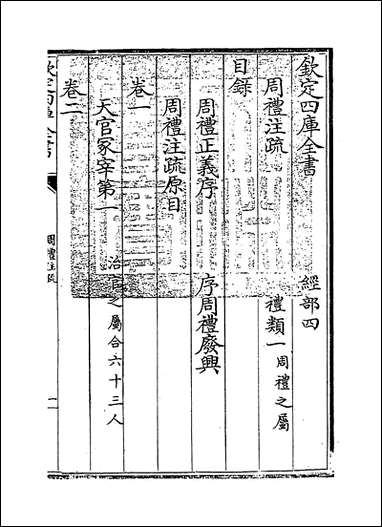 欽定四庫全書 經部四
周禮注疏 禮類一周禮之屬
目錄
周禮正義序 序周禮廢興
周禮注疏原目
卷一
天官冢宰第一 治官之屬合六十三人
卷二
欽定四庫全書
周禮注疏
一